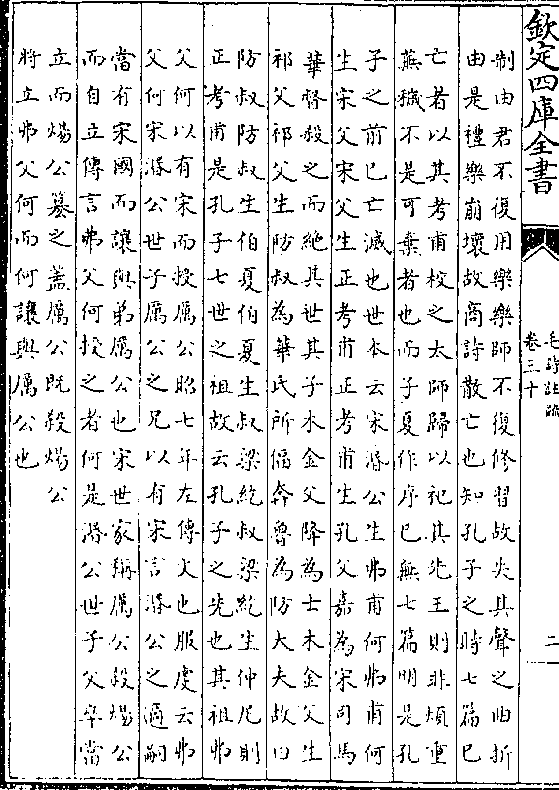 欽定四庫全書
毛詩註疏
卷三十
二
制由君不復用樂樂師不復修習故失其聲之曲折
由是禮樂崩壞故商詩散亡也知孔子之時七篇已
亡者以其考甫校之太師歸以祀其先王則非煩重
蕪穢不是可棄者也而子夏作序已無七篇明是孔
子之前已亡滅也世本云宋湣公生弗甫何弗甫何
生宋父宋父生正考甫正考甫生孔父嘉為宋司馬
華督殺之而絕其世其子木金父降為士木金父生
祁父祁父生防叔為華氏所偪奔魯為防大夫故曰
防叔防叔生伯夏伯夏生叔梁紇叔梁紇生仲尼則
正考甫是孔子七世之祖故云孔子之先也其祖弗
父何以有宋而授厲公昭七年左傳文也服虔云弗
父何宋湣公世子厲公之兄以有宋言湣公之適嗣
當有宋國而讓與弟厲公也宋世家稱厲公殺煬公
而自立傳言弗父何授之者何是湣公世子父卒當
立而煬公篡之蓋厲公既殺煬公
將立弗父何而何讓與厲公也